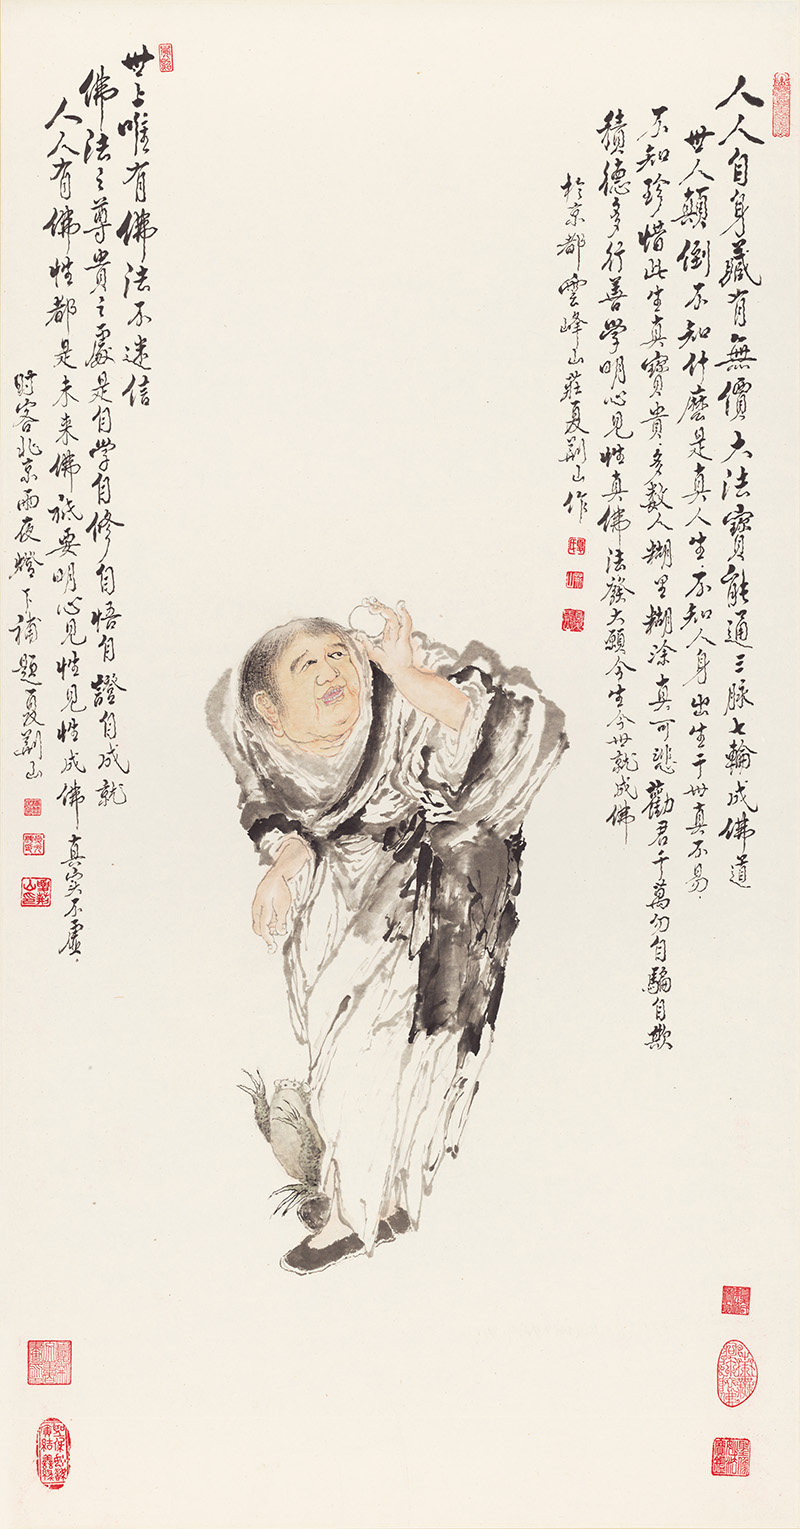 人人自身藏有無價大法寶能通三脈七輪成佛道
世人顛倒不知什麼是真人生不知人身出生于世真不易
不知珍惜此生真寶貴多數人糊里糊涂真可悲勸君千萬勿自騙自欺
積德多行善學明心見性真佛法發大願今生今世就成佛
於京都雲峰山莊夏荊山作
世上唯有佛法不迷信
佛法之尊貴之處是自學自修自悟自證自成就
人人有佛性都是未来佛祇要明心見性見性成佛真实不虛
時客北京雨夜燈下補題夏荊山